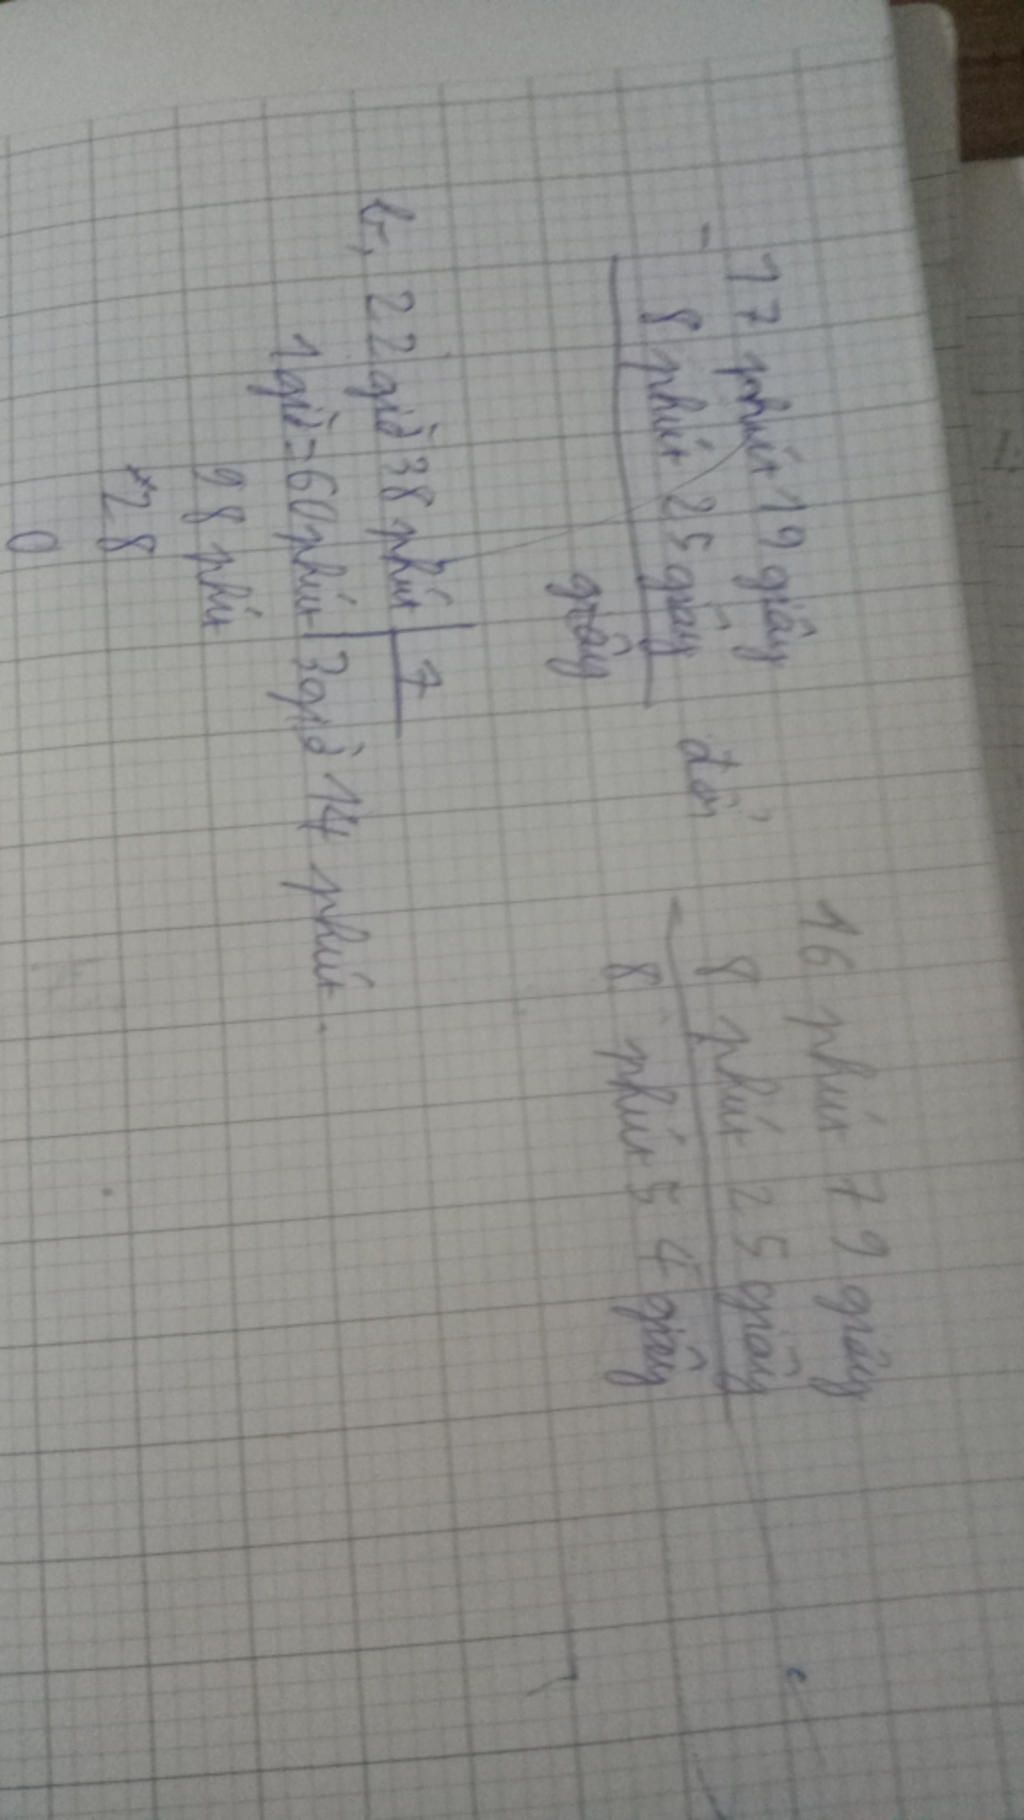 - 17 phút 19 giây
8 phút 25 giây
giây
đổi
16 phút 79 giây
-
8 phút 25 giây
8 phút 54 giây
b, 22 giờ 38 phút 7
1 giờ = 60 phút 3 giờ 14 phút
98 phút
28
0